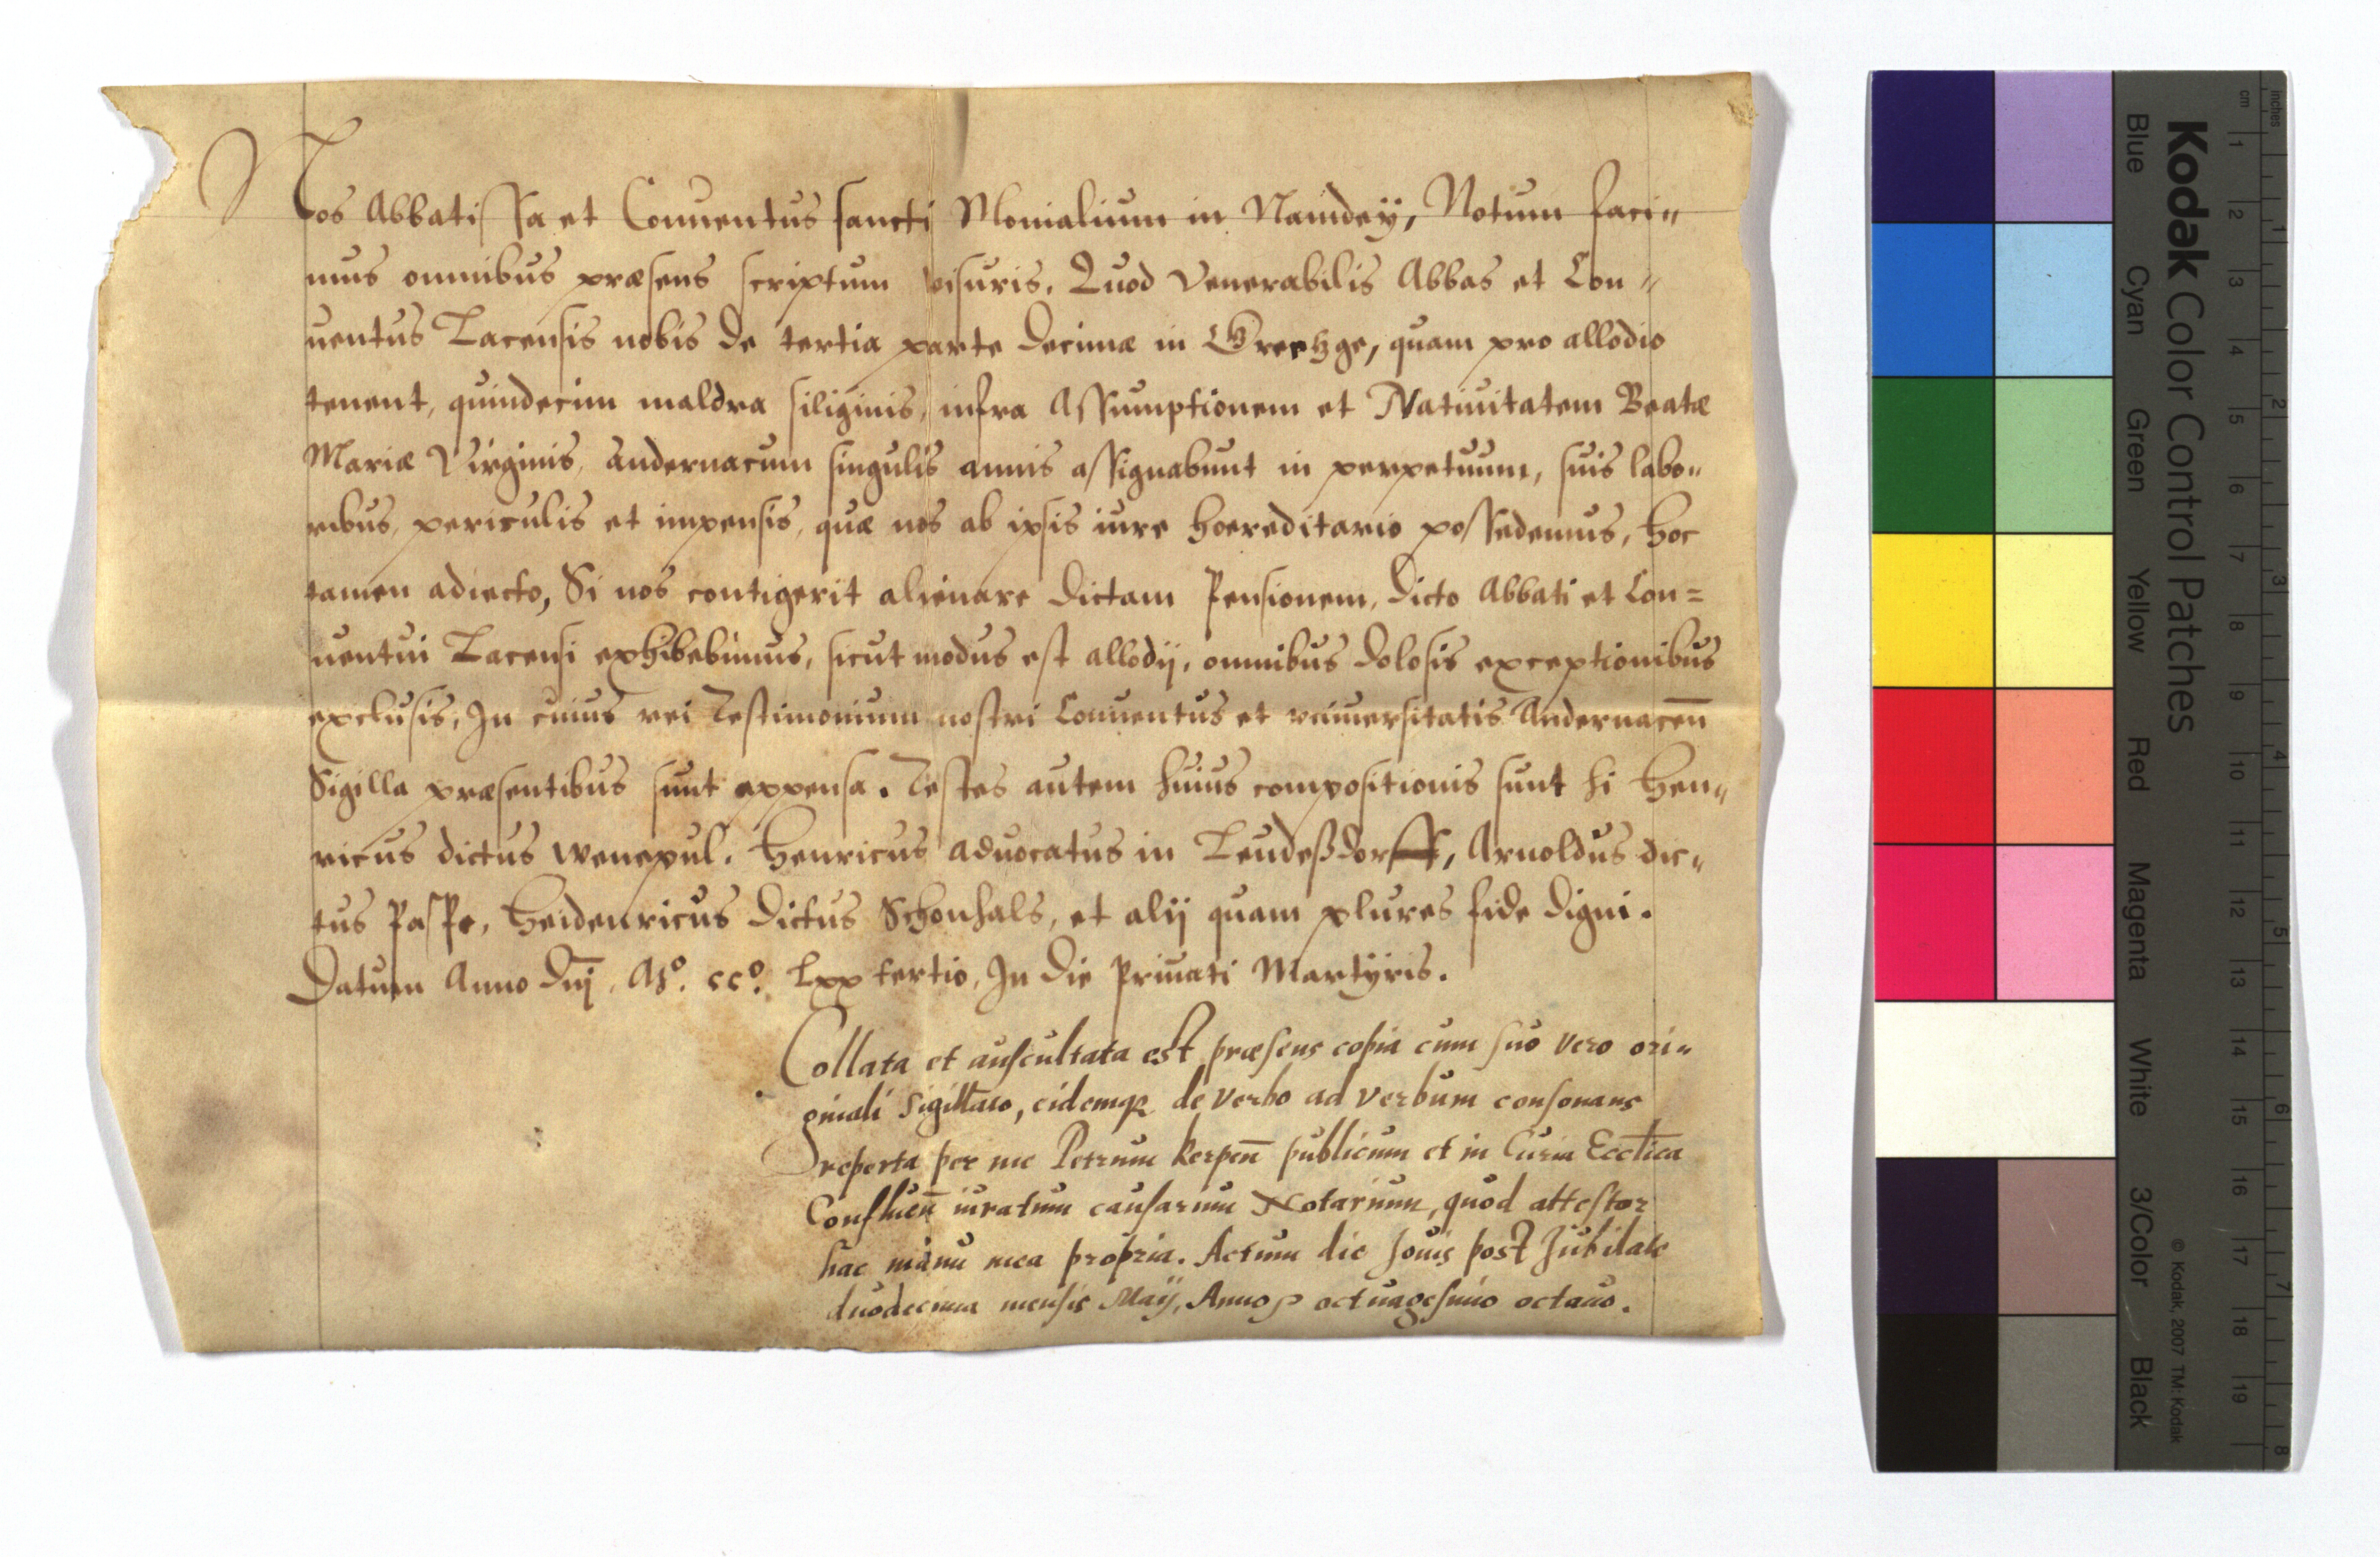 Nos Abbatissa et Conuentus sancti Monialium in Namdeÿ, Notum faci„
mus omnibus præsens scriptum visuris. Quod Venerabilis Abbas et Con„
uentus Lacensis nobis de tertia parte decimæ in Greehge, quam pro allodio
tenent, quindecim maldra siliginis, infra Assumptionem et Natiuitatem Beatæ
Mariæ Virginis, Andernacum singulis annis assignabunt in perpetuum, suis labo„
ribus, periculis et impensis, quæ nos ab ipsis iure hoereditario possedemus, hoc
tamen adiecto, Si nos contigerit alienare dictam Pensionem, dicto Abbati et Con=
uentui Lacensi exhibebimus, sicut modus est allodij, omnibus dolosis exceptionibus
exclusis, In cuius rei Testimonium nostri Conuentus et vniuersitatis Andernaceñ
Sigilla præsentibus sunt appensa. Testes autem huius compositionis sunt hi Hen„
ricus dictus Wenepul. Henricus aduocatus in Leudeßdorff, Arnoldus dic„
tus Paspe, Heidenricus dictus Schonhals, et alij quam plures fide digni.
Datum Anno Dnj. Mº. ccº. Lxx tertio, In die Priuati Martÿris.
Collata et auscultata est præsens copia cum suo vero ori„
ginali sigillato, eidemq3 de verbo ad verbum consonans
reperta per me Petrum Kerpeñ publicum et in Curia Ecctica
Conflueñ iuratum causarum Notarium, quod attestor
hac manu mea propria. Actum die Jouis post Jubilate
duodecima mensis Maÿ, Anno octuagesimo octauo.
Kodak Color Control Patches
Blue Cyan Green Yellow Red Magenta White 3/Color Black
© Kodak, 2007 TM: Kodak
cm 1 2 3 4 5 6 7 8 9 10 11 12 13 14 15 16 17 18 19
inches 1 2 3 4 5 6 7 8